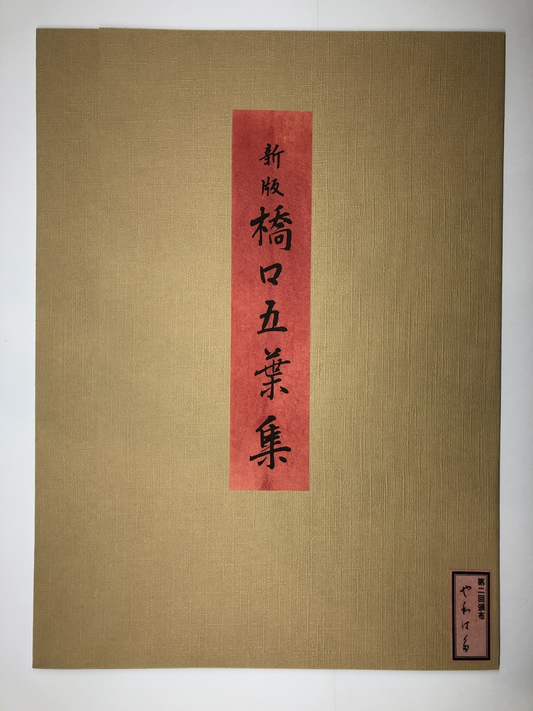 新版 橋口五葉集
第二回頒布
やわはだ